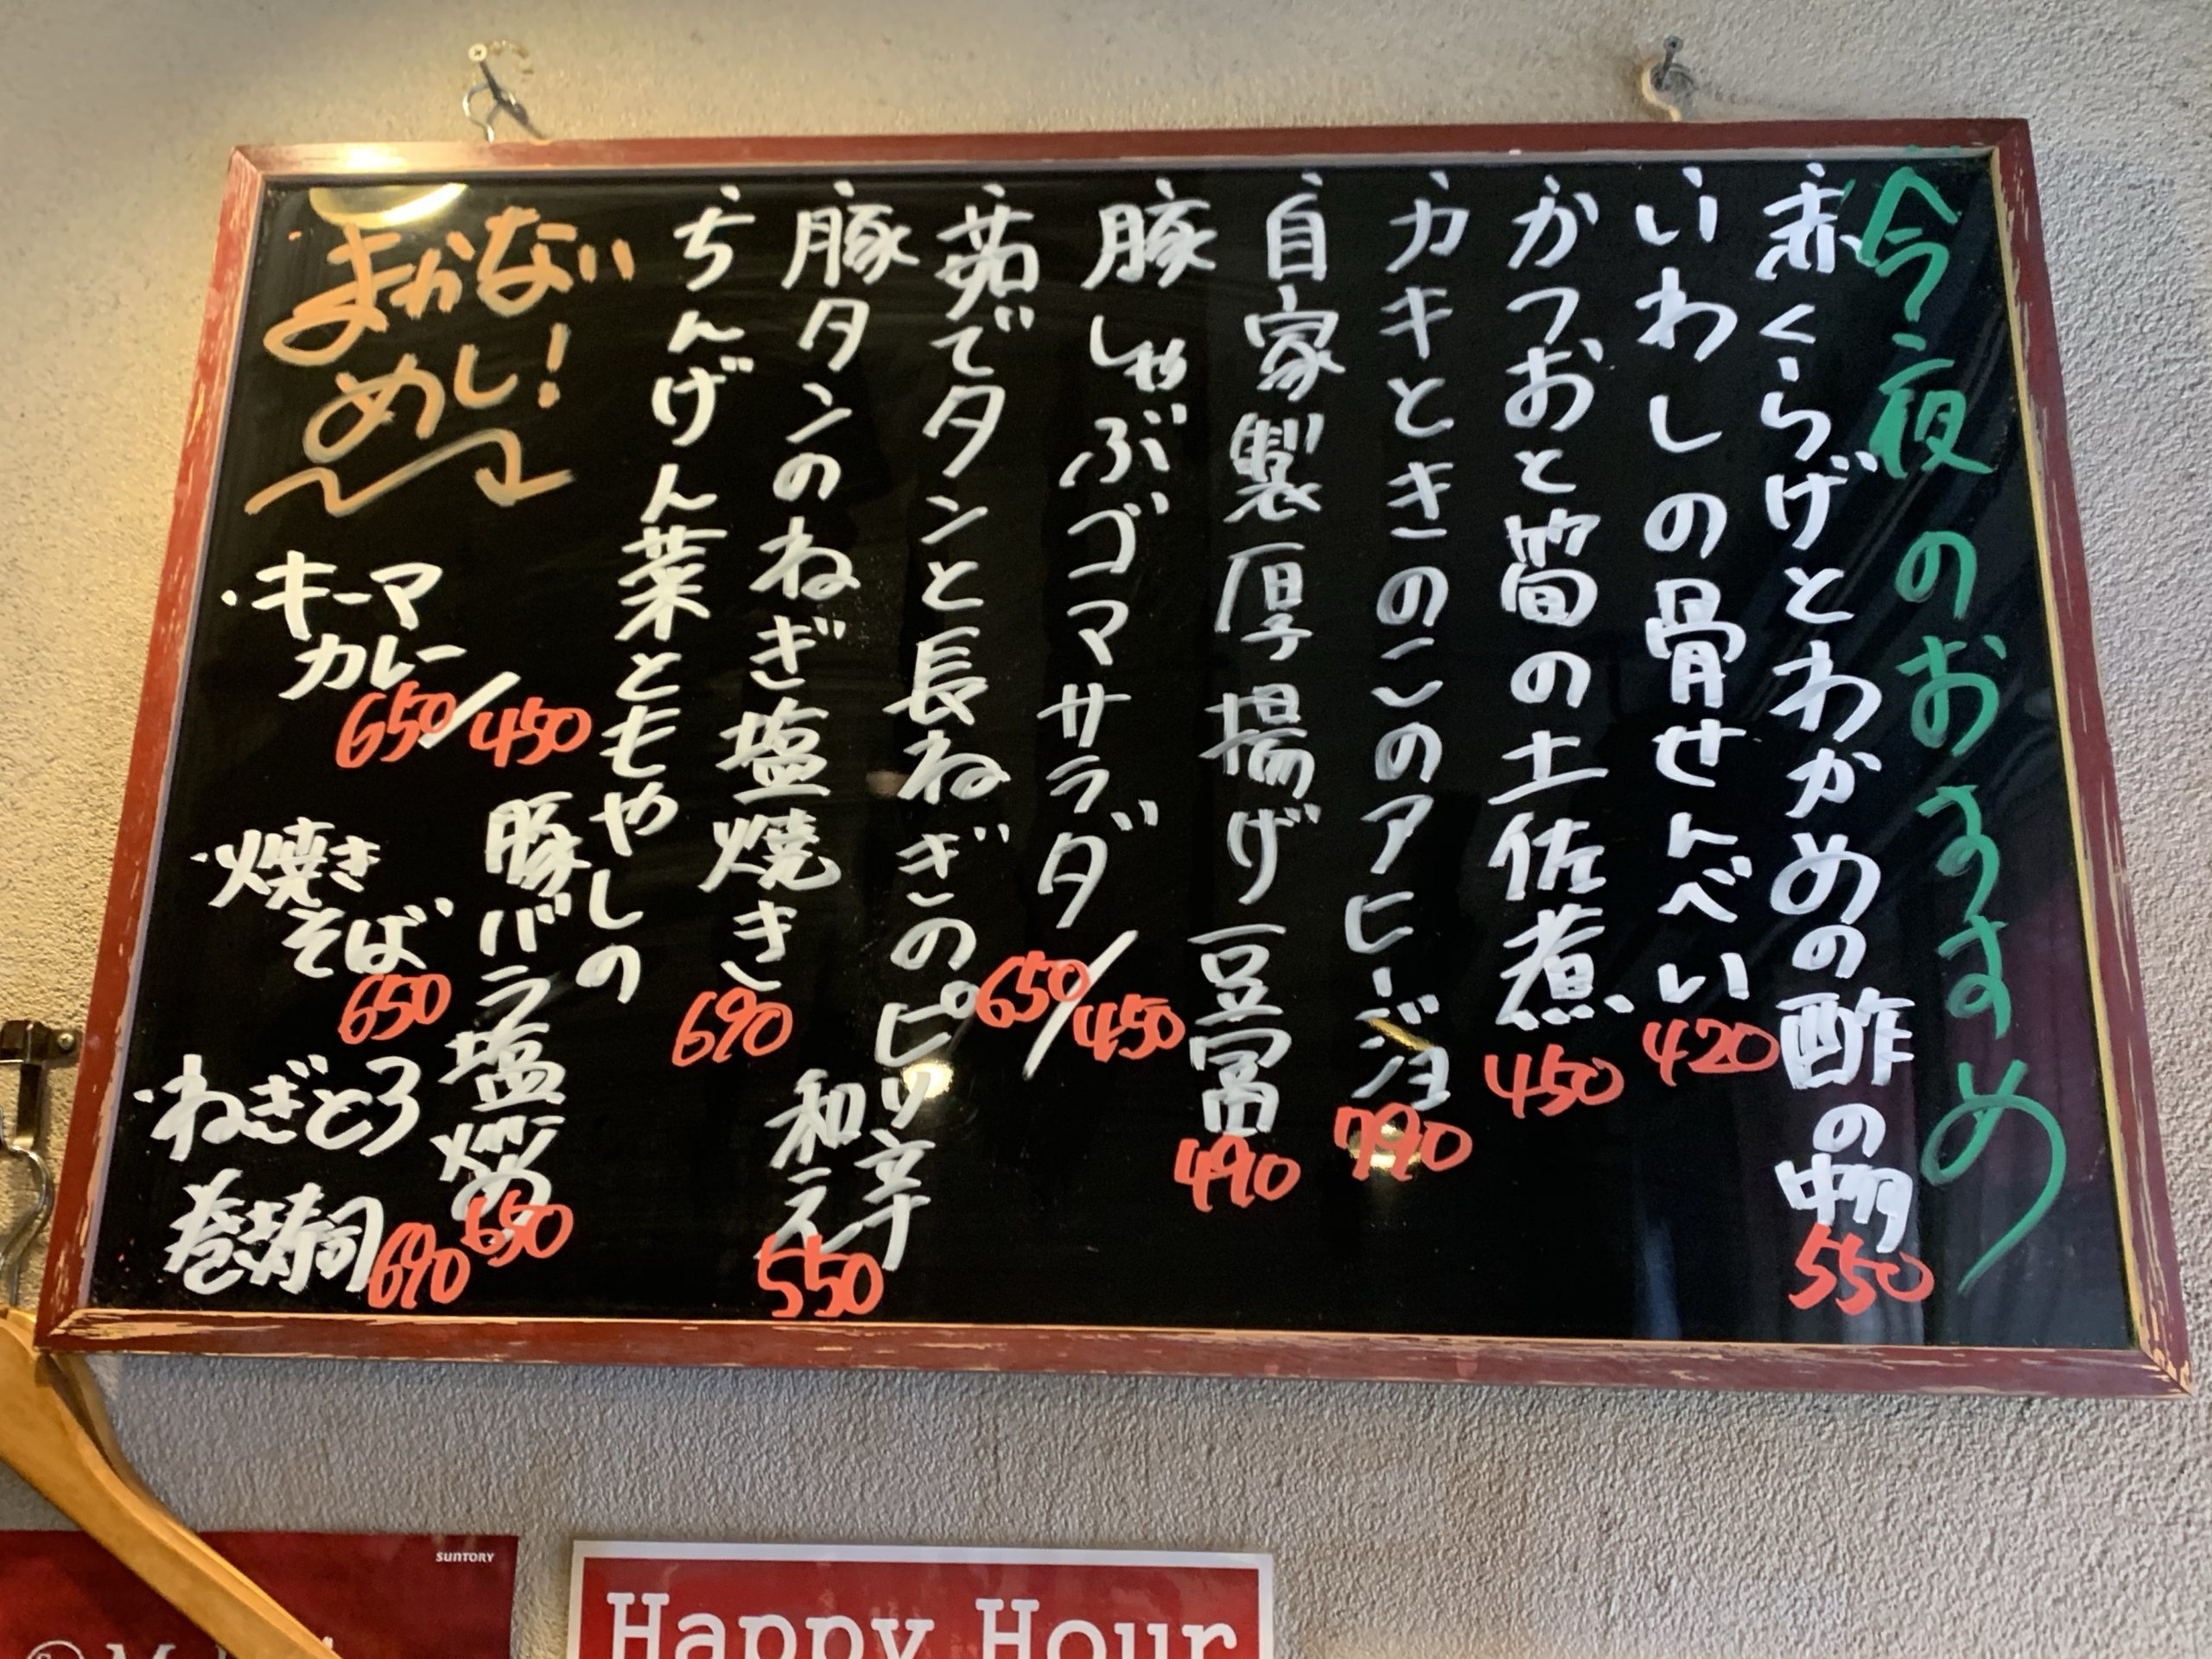 今夜のおすすめ
赤くらげとわかめの酢の物
550
いわしの骨せんべい
420
かつおと筍の土佐煮
450
カキときのこのアヒージョ
790
自家製厚揚げ豆富
490
豚しゃぶゴマサラダ
650/450
茹でタンと長ねぎのピリ辛
和え
550
豚タンのねぎ塩焼き
690
ちんげん菜ともやしの
豚バラ塩炒め
650
まかない
めし!
・キーマ
カレー
650/450
・焼き
そば
650
・ねぎとろ
巻き寿司
690
SUNTORY
Happy Hour